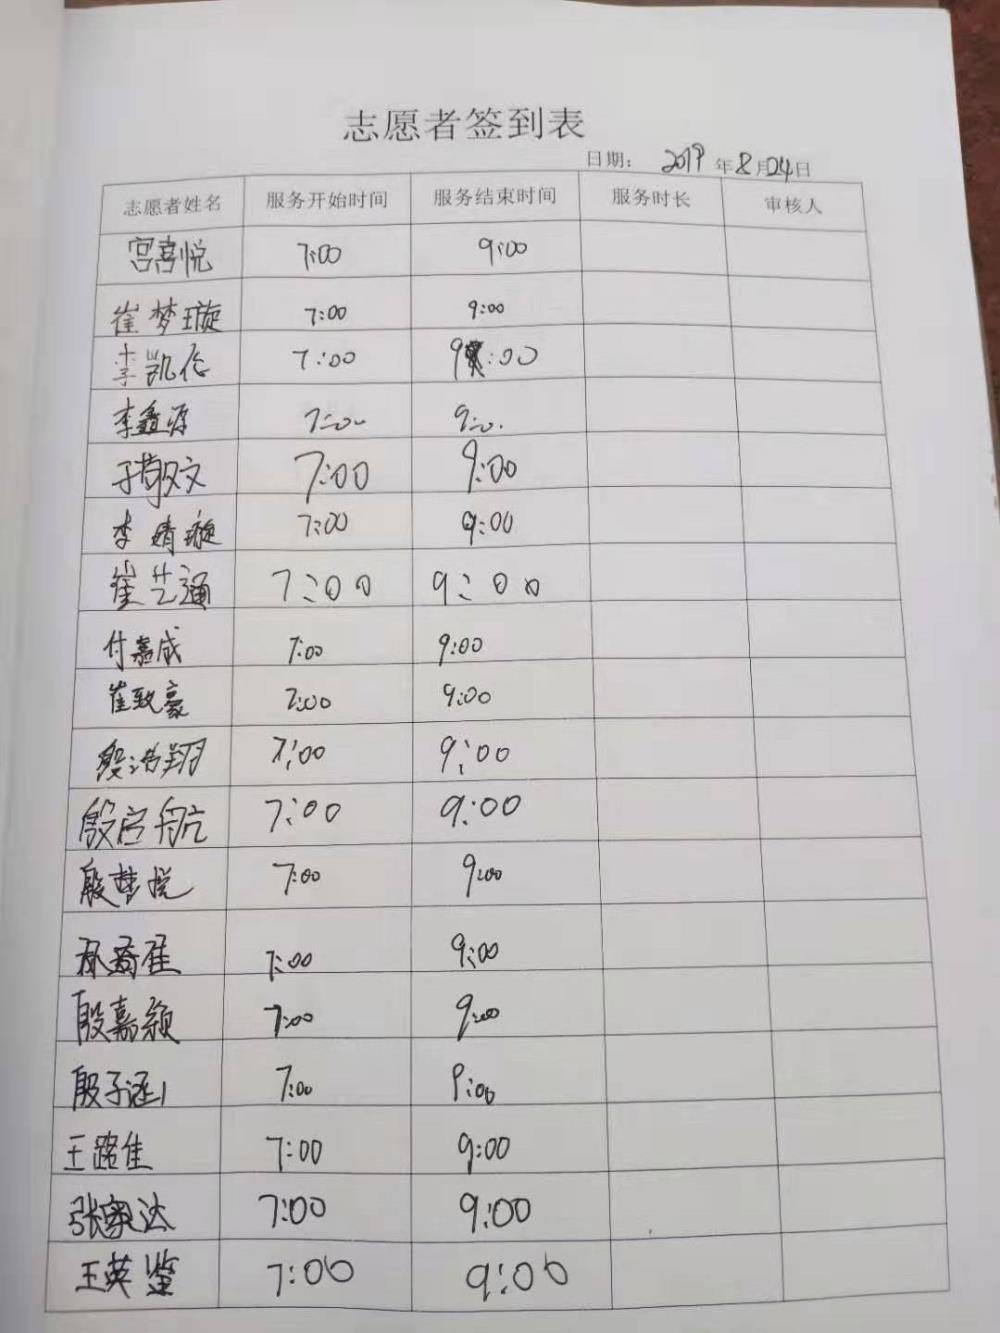 志愿者签到表
日期： 2019 年 8 月 24 日
志愿者姓名 服务开始时间 服务结束时间 服务时长 审核人
宫喜悦 7:00 9:00
崔梦璇 7:00 9:00
李凯伦 7:00 9:00
李鑫源 7:00 9:00
于敬文 7:00 9:00
李婧璇 7:00 9:00
崔艺通 7:00 9:00
付嘉成 7:00 9:00
崔致豪 7:00 9:00
殷浩翔 7:00 9:00
殷启航 7:00 9:00
殷梦悦 7:00 9:00
7:00 9:00
殷嘉颖 7:00 9:00
殷子涵 7:00 9:00
王路佳 7:00 9:00
张家达 7:00 9:00
王英鉴 7:00 9:00